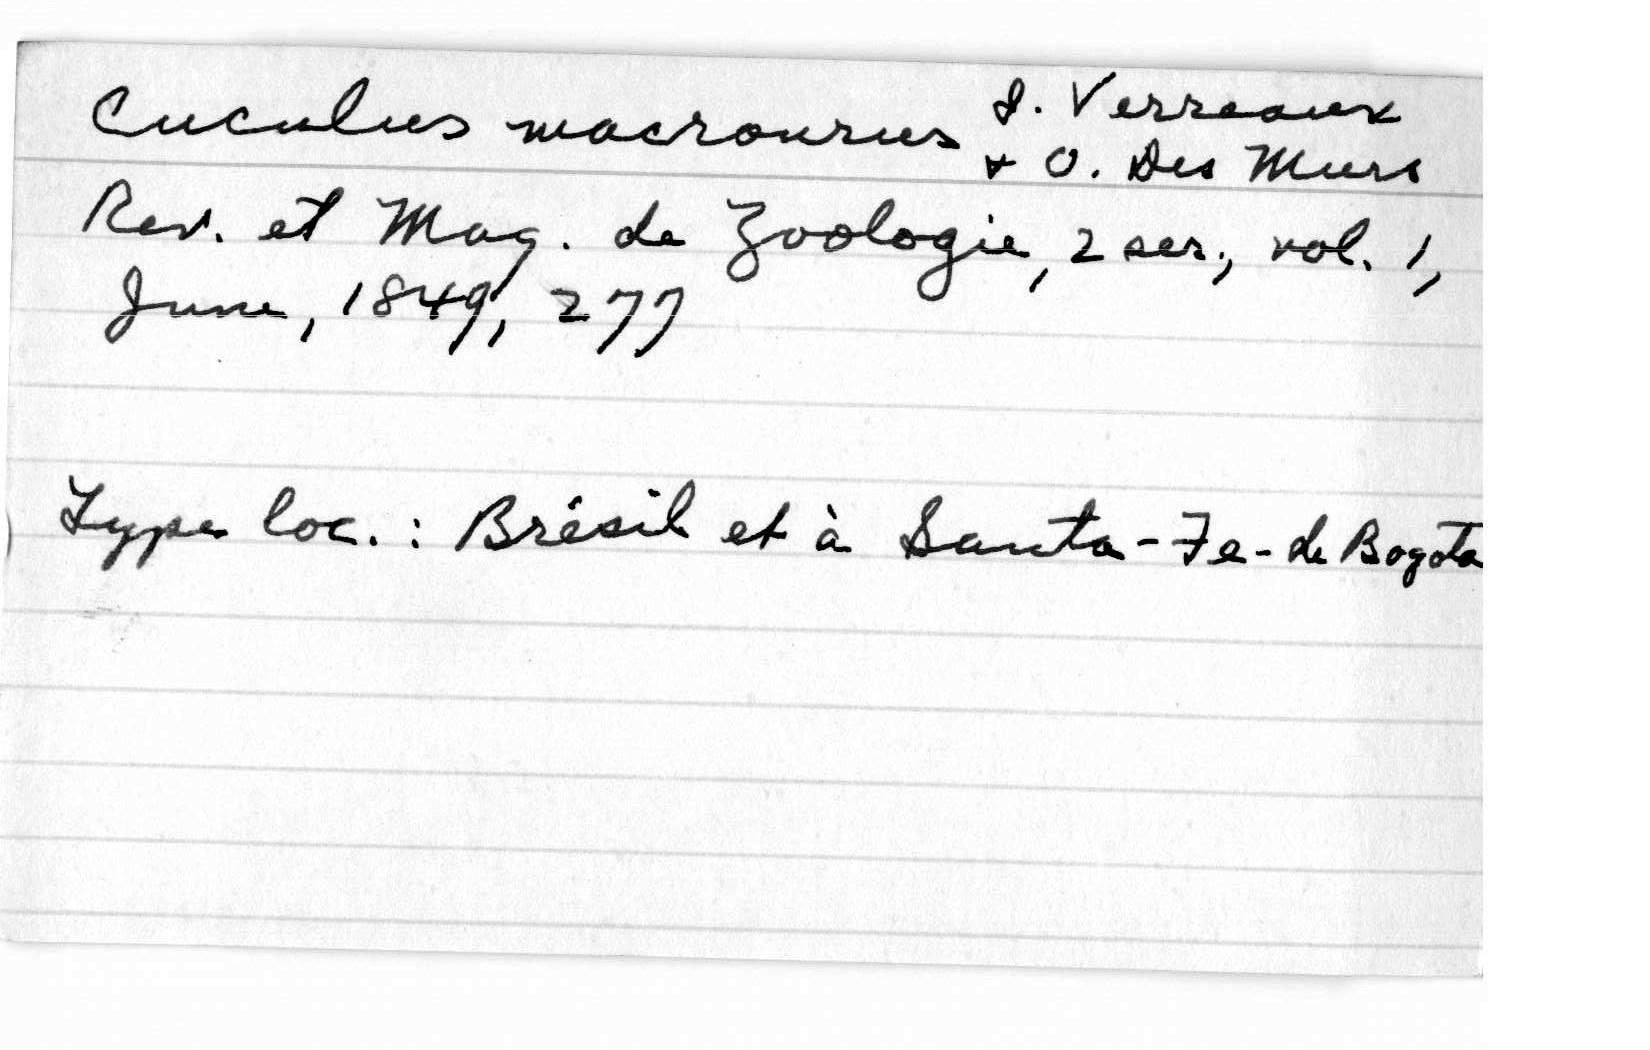 Cuculus macrourus J. Verreaux
& O. Des Murs
Rev. et Mag. de Zoologie, 2 ser., vol. 1,
June, 1849, 277
Type loc. : Brésil et à Santa-Fe-de Bogota